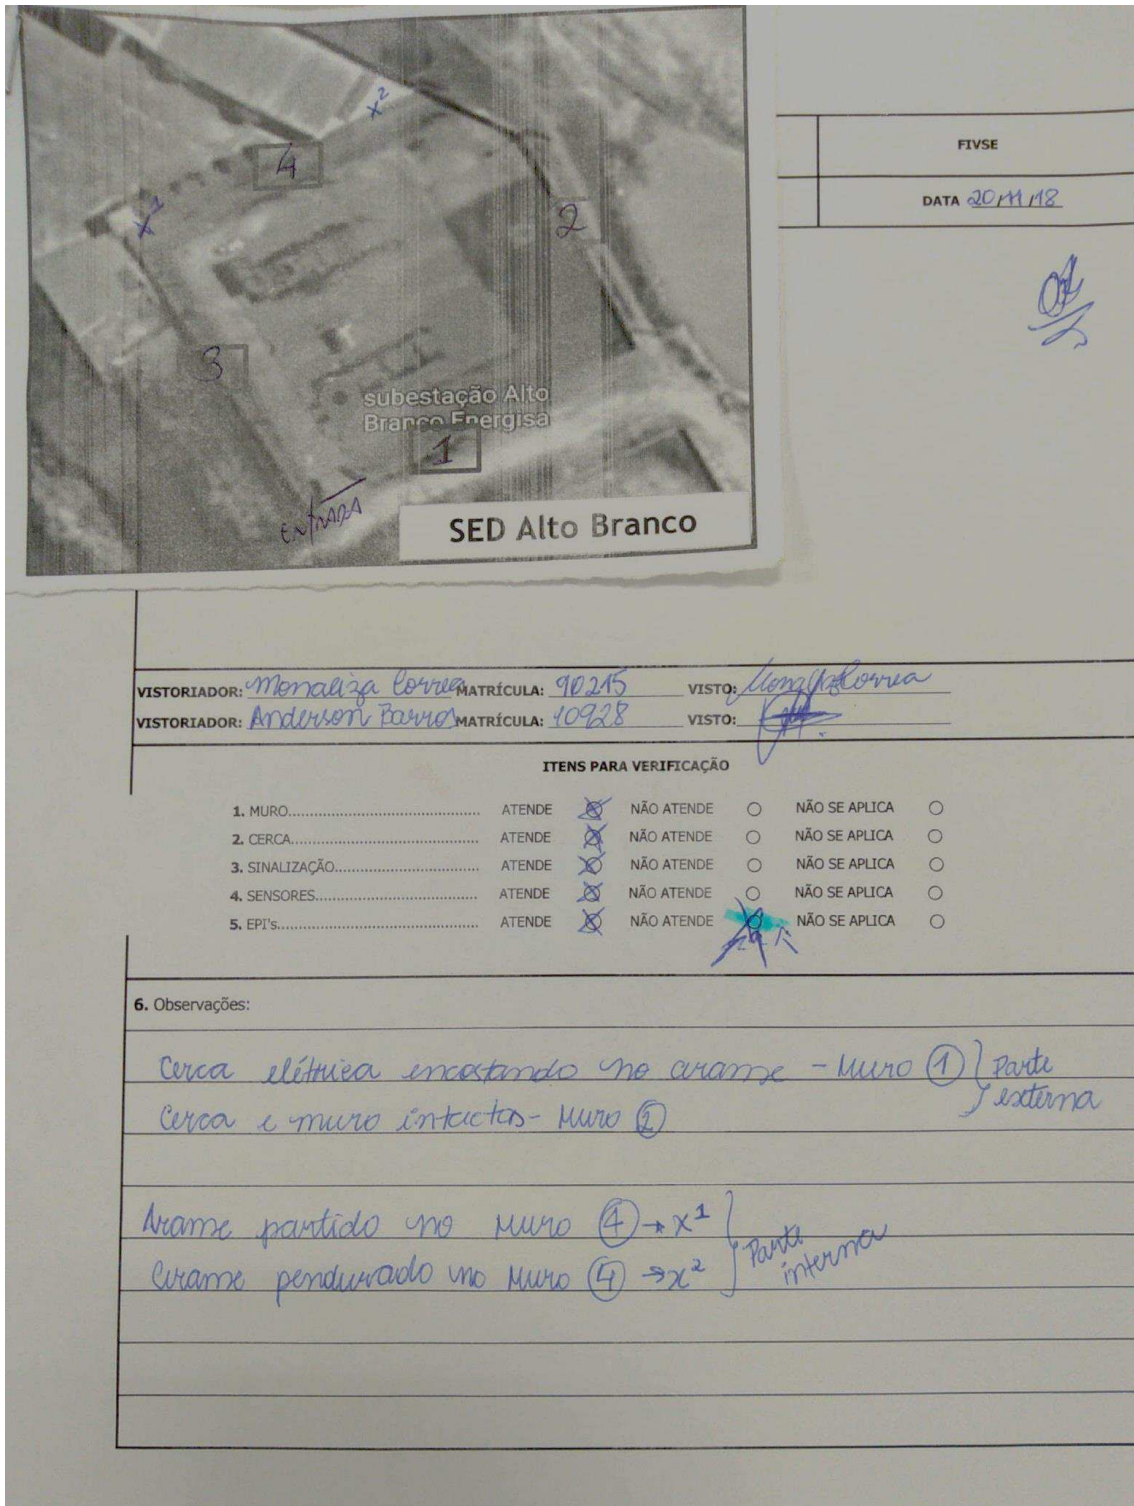 x²
4
x¹
2
3
subestação Alto
Branco Energisa
1
ENTRADA
SED Alto Branco
FIVSE
DATA 20/11/18
VISTORIADOR: Monaliza Correa MATRÍCULA: 90215 VISTO: Monaliza Correa
VISTORIADOR: Anderson Barros MATRÍCULA: 10928 VISTO:
ITENS PARA VERIFICAÇÃO
1. MURO.................................................. ATENDE NÃO ATENDE NÃO SE APLICA
2. CERCA................................................. ATENDE NÃO ATENDE NÃO SE APLICA
3. SINALIZAÇÃO...................................... ATENDE NÃO ATENDE NÃO SE APLICA
4. SENSORES........................................... ATENDE NÃO ATENDE NÃO SE APLICA
5. EPI's..................................................... ATENDE NÃO ATENDE NÃO SE APLICA
6. Observações:
Cerca elétrica encostando no arame - Muro 1 } Parte
Cerca e muro intactos - Muro 2 externa
Arame partido no Muro 4 → x¹ }
Arame pendurado no Muro 4 → x² Parte interna